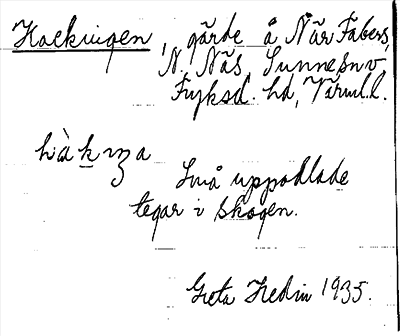 Hackingen, gärde å När Fabers,
N. Näs, Sunne sn
Fryksd. hd, Värml. l.
Små uppodlade
tegar i skogen.
Greta Hedin 1935.